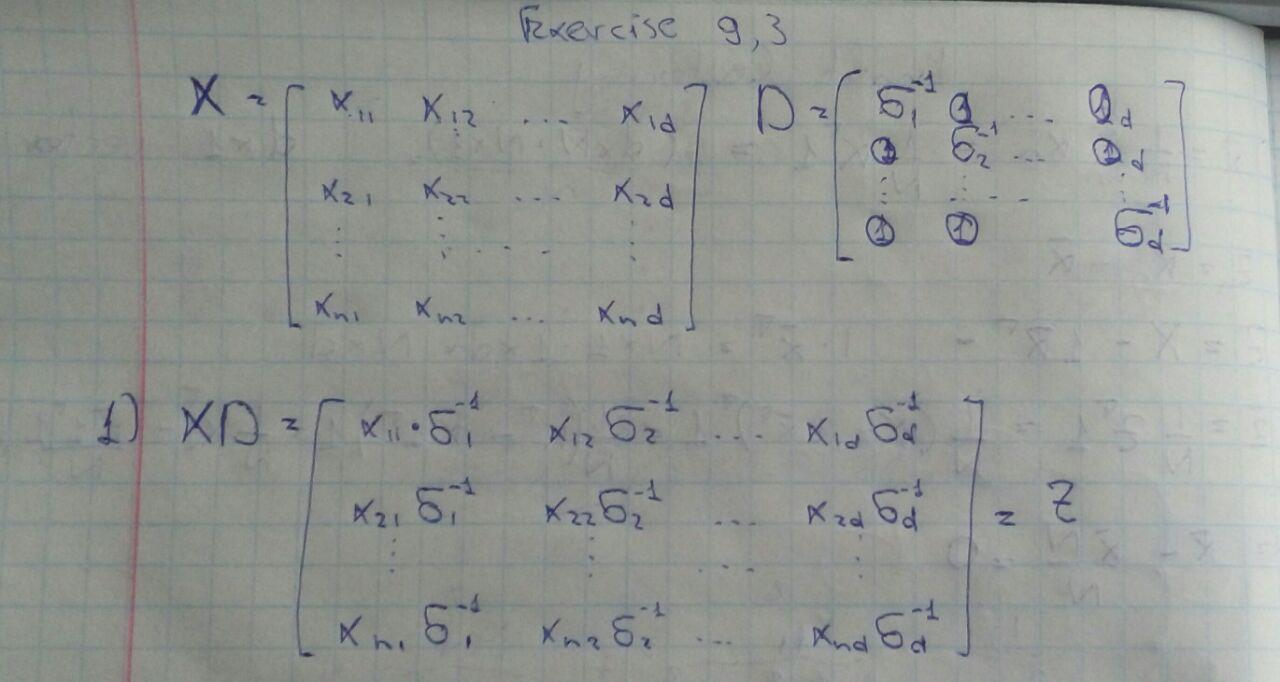 Exercise 9,3
X = [ x₁₁ x₁₂ ... x₁d ] D = [ σ₁⁻¹ 0 ... 0 d
x₂₁ x₂₂ ... x₂d 0 σ₂⁻¹ ... 0 d
⋮ ⋮ ... ⋮ ⋮ ⋮ ... ⋮
xₙ₁ xₙ₂ ... xₙd 0 0 σd⁻¹ ]
1) XD = [ x₁₁·σ₁⁻¹ x₁₂σ₂⁻¹ ... x₁dσd⁻¹
x₂₁σ₁⁻¹ x₂₂σ₂⁻¹ ... x₂dσd⁻¹ ] = Z
⋮ ⋮ ... ⋮
xₙ₁σ₁⁻¹ xₙ₂σ₂⁻¹ ... xₙdσd⁻¹